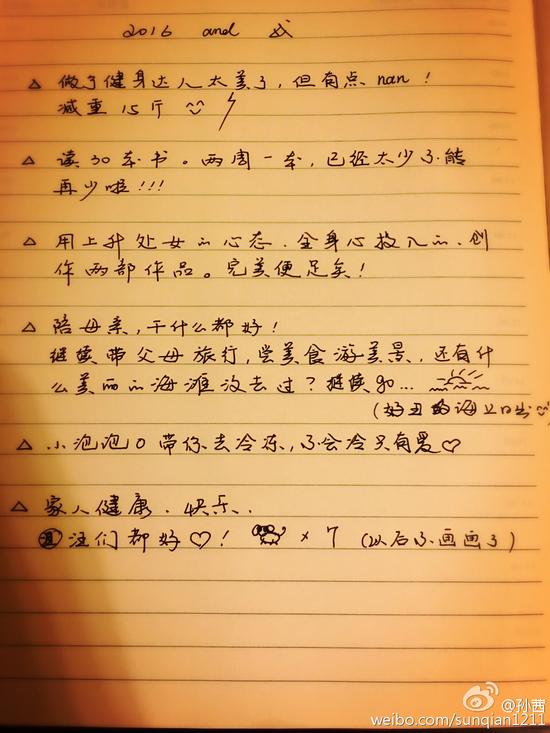 2016 and 我
△ 做了健身达人太美了，但有点nan！
减重15斤
△ 读30本书。两周一本，已经太少不能
再少啦!!!
△ 用上升处女的心态、全身心投入的、创
作两部作品。完美便足矣！
△ 陪母亲，干什么都好！
继续带父母旅行，尝美食游美景，还有什
么美丽的海滩没去过？继续go...
(好丑的海上日出
△ 小泡泡O带你去冷冻，不会冷只有爱♡
△ 家人健康、快乐、
汪们都好♡！ x 7 (以后不画画了)
@孙茜
weibo.com/sunqian1211